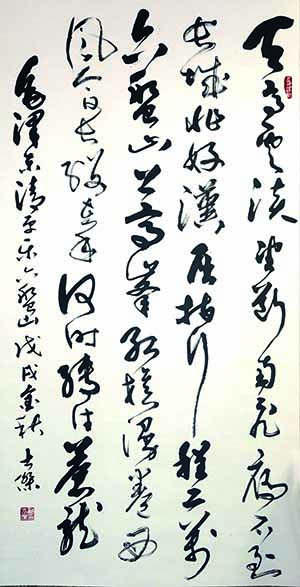 天高雲淡望斷南飛雁不到
長城非好漢屈指行程二萬
六盤山上高峰紅旗漫卷西
風今日長纓在手何時縛住蒼龍
毛澤東清平樂六盤山戊戌金秋傑